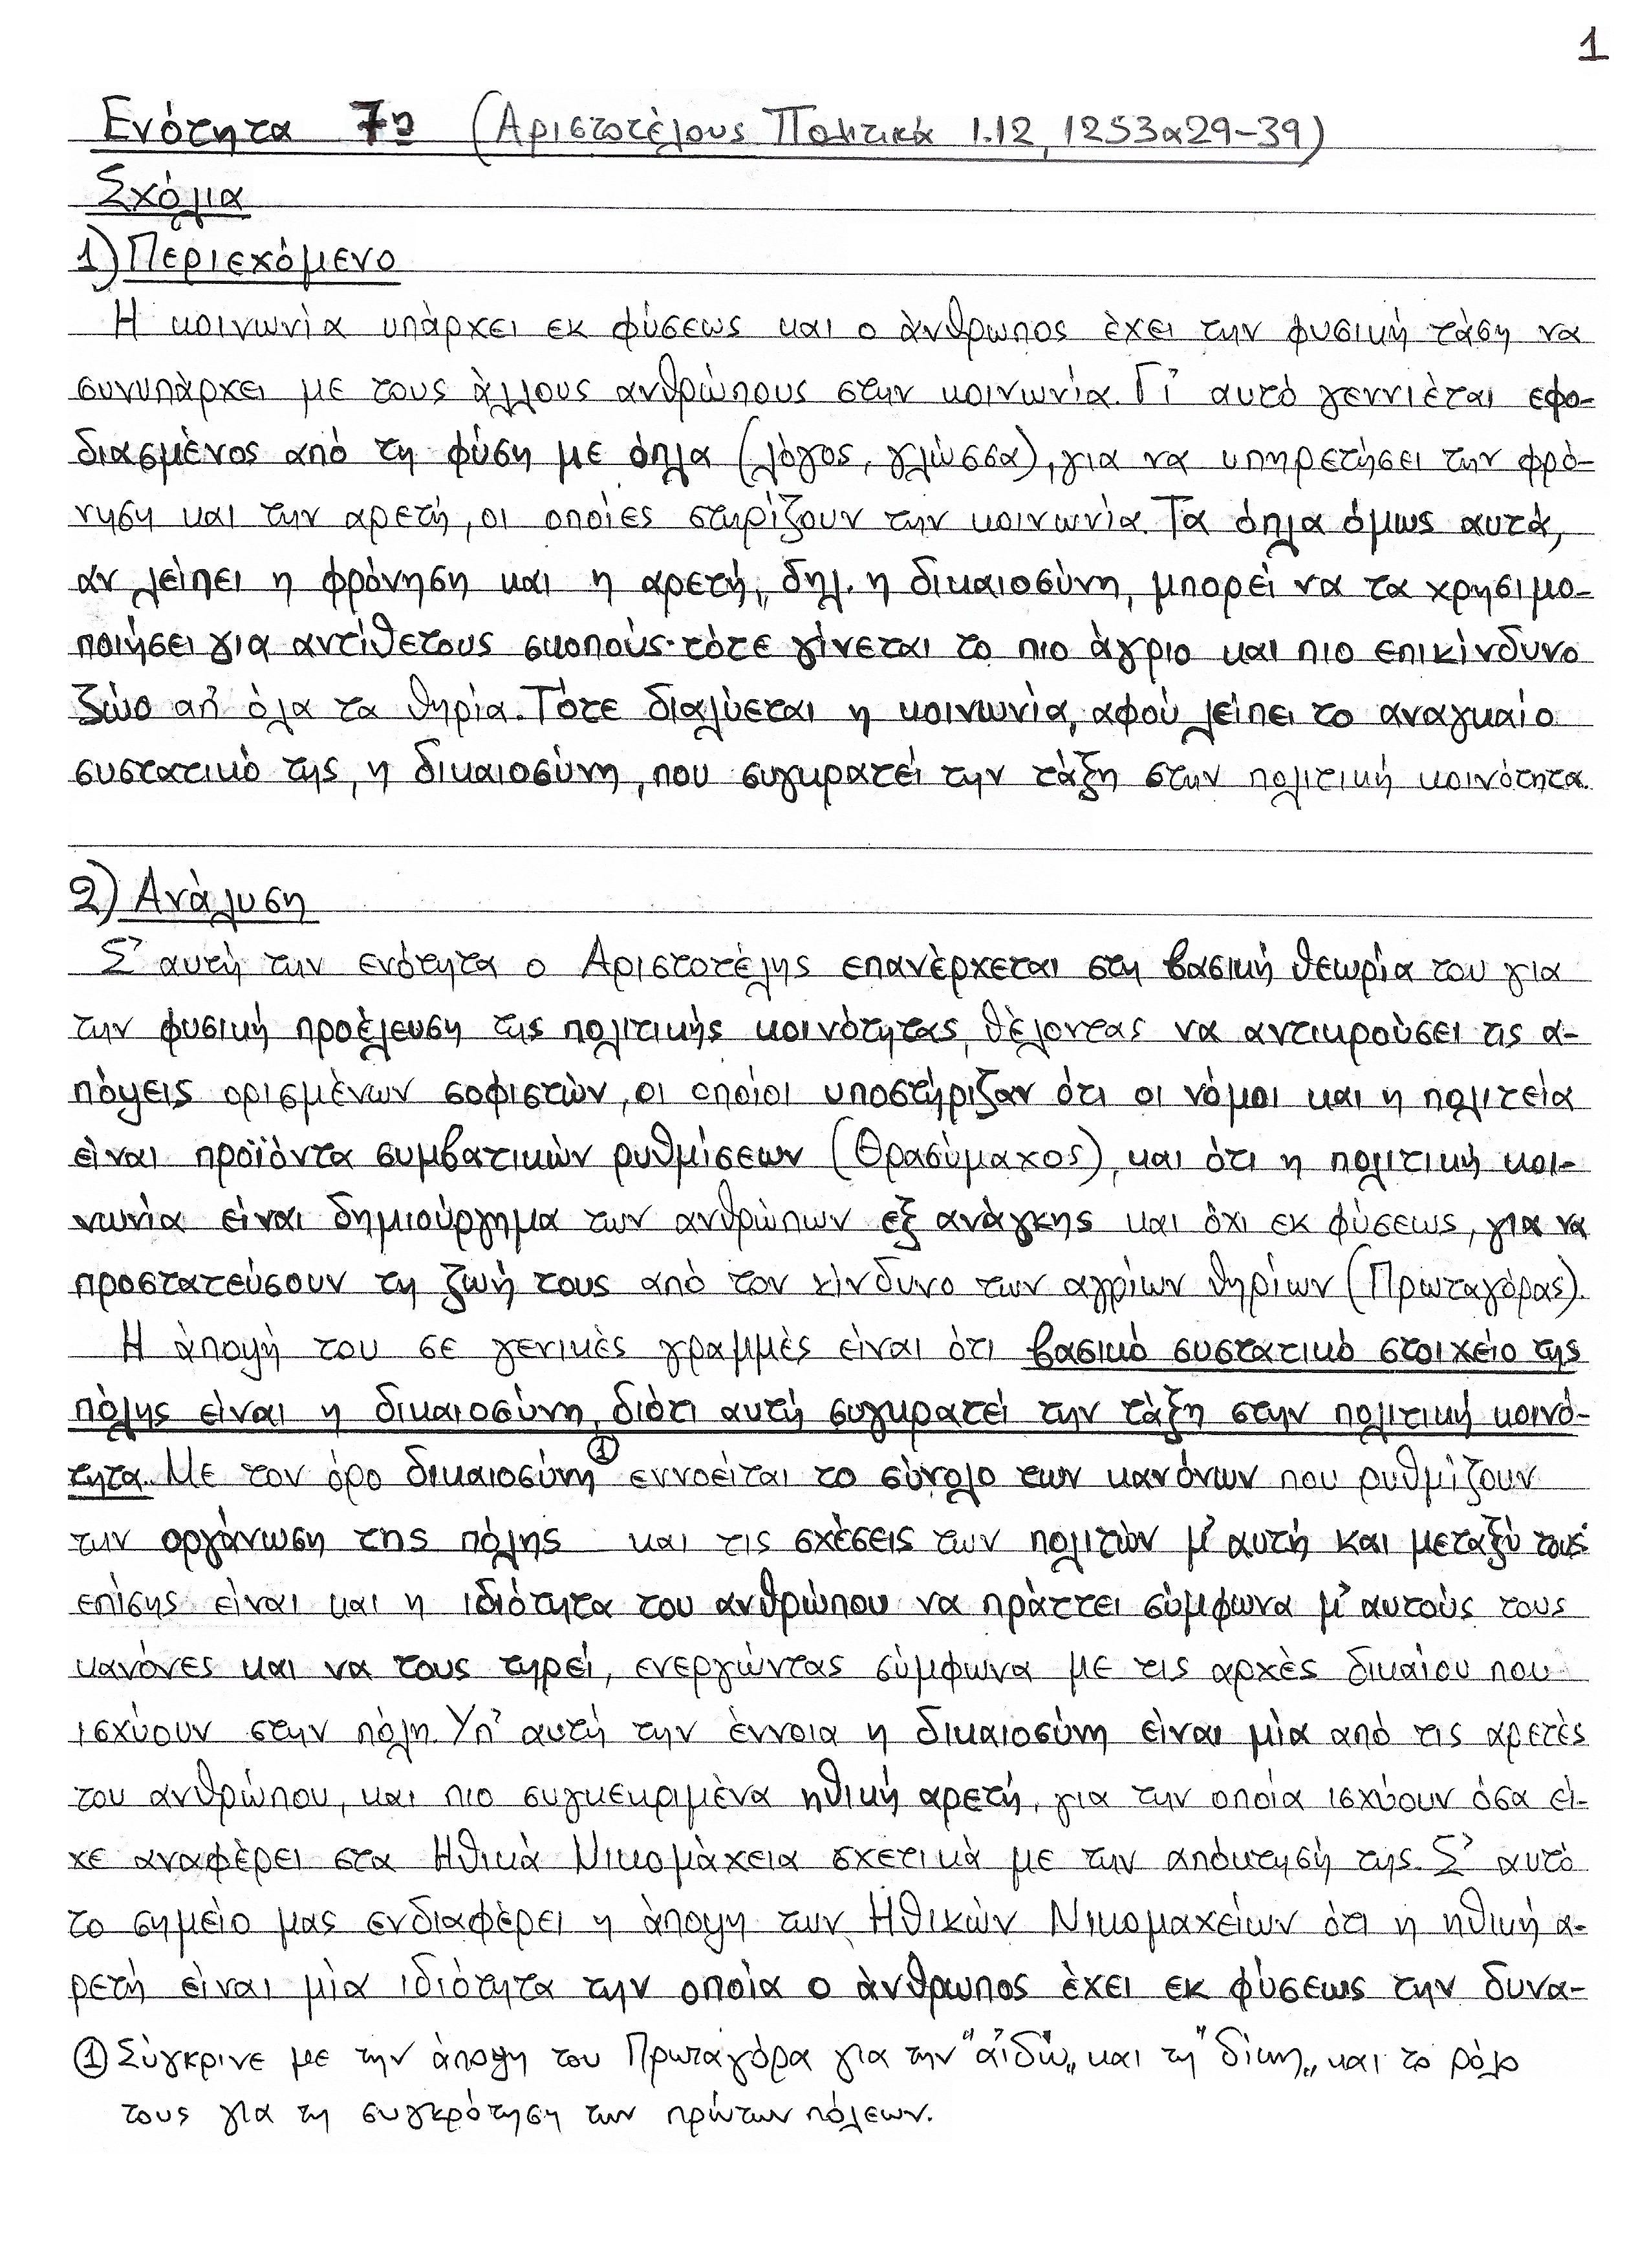 1
Ενότητα 7η (Αριστοτέλους Πολιτικά 1.12, 1253α29-39)
Σχόλια
1) Περιεχόμενο
Η κοινωνία υπάρχει εκ φύσεως και ο άνθρωπος έχει την φυσική τάση να
συνυπάρχει με τους άλλους ανθρώπους στην κοινωνία. Γι' αυτό γεννιέται εφο-
διασμένος από τη φύση με όπλα (λόγος, γλώσσα), για να υπηρετήσει την φρό-
νηση και την αρετή, οι οποίες στηρίζουν την κοινωνία. Τα όπλα όμως αυτά,
αν λείπει η φρόνηση και η αρετή, δηλ. η δικαιοσύνη, μπορεί να τα χρησιμο-
ποιήσει για αντίθετους σκοπούς· τότε γίνεται το πιο άγριο και πιο επικίνδυνο
ζώο απ' όλα τα θηρία. Τότε διαλύεται η κοινωνία, αφού λείπει το αναγκαίο
συστατικό της, η δικαιοσύνη, που συγκρατεί την τάξη στην πολιτική κοινότητα.
2) Ανάλυση
Σ' αυτή την ενότητα ο Αριστοτέλης επανέρχεται στη βασική θεωρία του για
την φυσική προέλευση της πολιτικής κοινότητας, θέλοντας να αντικρούσει τις α-
πόψεις ορισμένων σοφιστών, οι οποίοι υποστήριζαν ότι οι νόμοι και η πολιτεία
είναι προϊόντα συμβατικών ρυθμίσεων (Θρασύμαχος), και ότι η πολιτική κοι-
νωνία είναι δημιούργημα των ανθρώπων εξ ανάγκης και όχι εκ φύσεως, για να
προστατεύσουν τη ζωή τους από τον κίνδυνο των αγρίων θηρίων (Πρωταγόρας).
Η άποψή του σε γενικές γραμμές είναι ότι βασικό συστατικό στοιχείο της
πόλης είναι η δικαιοσύνη, διότι αυτή συγκρατεί την τάξη στην πολιτική κοινό-
τητα. Με τον όρο δικαιοσύνη ① εννοείται το σύνολο των κανόνων που ρυθμίζουν
την οργάνωση της πόλης και τις σχέσεις των πολιτών μ' αυτή και μεταξύ τους·
επίσης είναι και η ιδιότητα του ανθρώπου να πράττει σύμφωνα μ' αυτούς τους
κανόνες και να τους τηρεί, ενεργώντας σύμφωνα με τις αρχές δικαίου που
ισχύουν στην πόλη. Υπ' αυτή την έννοια η δικαιοσύνη είναι μία από τις αρετές
του ανθρώπου, και πιο συγκεκριμένα ηθική αρετή, για την οποία ισχύουν όσα εί-
χε αναφέρει στα Ηθικά Νικομάχεια σχετικά με την απόκτησή της. Σ' αυτό
το σημείο μας ενδιαφέρει η άποψη των Ηθικών Νικομαχείων ότι η ηθική α-
ρετή είναι μία ιδιότητα την οποία ο άνθρωπος έχει εκ φύσεως την δυνα-
① Σύγκρινε με την άποψη του Πρωταγόρα για την "αἰδώ" και τη "δίκη" και το ρόλο
τους για τη συγκρότηση των πρώτων πόλεων.